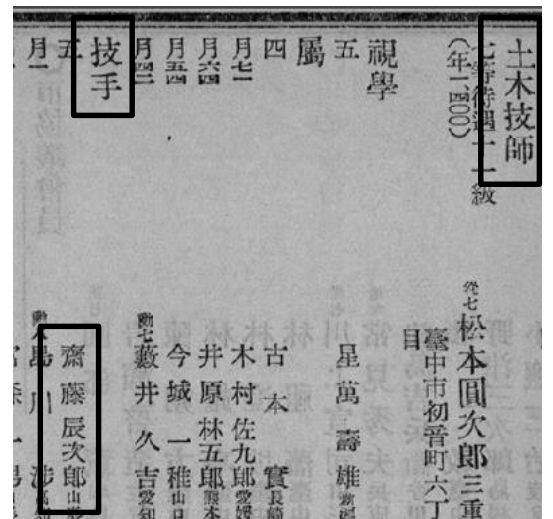 土木技師
七等待遇十一級
(年一、四〇〇)
從七 松本圓次郎 三重
臺中市初音町六丁
目
視學
五 星萬壽雄
屬
四 古本實 長崎
月七一 木村佐九郎 愛媛
月六四 井原林五郎 熊本
月五四 今城一稚 山口
勳七 藪井久吉 愛知
技手
五 齋藤辰次郎
月一 勳八 島川渉